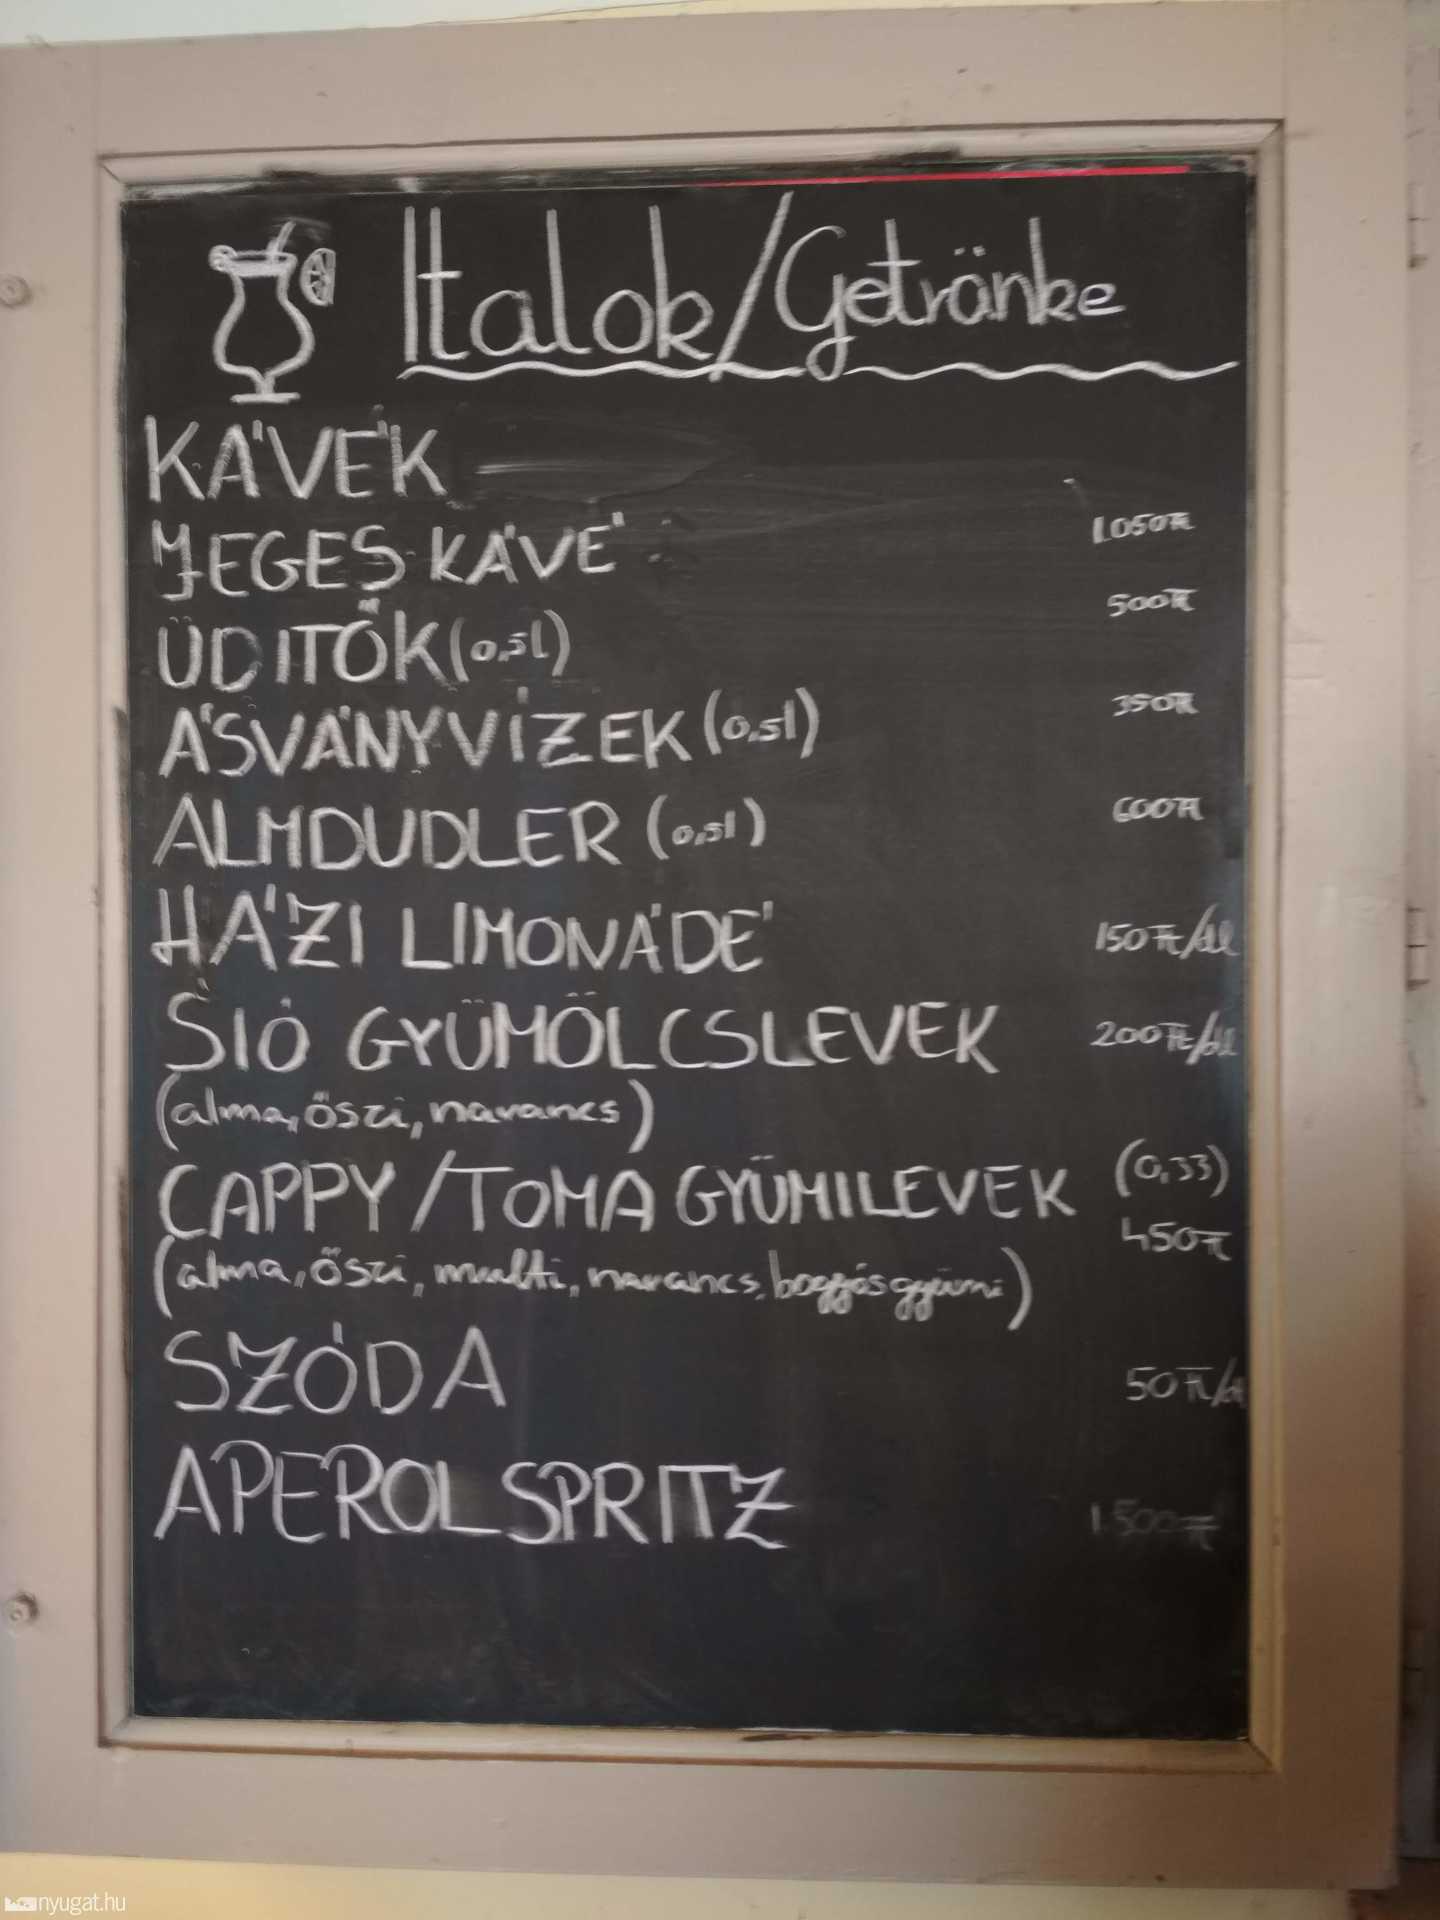 Italok/Getränke
KÁVÉK
JEGES KÁVÉ 1.050Ft
ÜDITŐK (0,5l) 500Ft
ÁSVÁNYVÍZEK (0,5l) 350Ft
ALMDUDLER (0,5l) 600Ft
HÁZI LIMONÁDÉ 150Ft/dl
SIÓ GYÜMÖLCSLEVEK 200Ft/dl
(alma, őszi, narancs)
CAPPY/TOMA GYÜMILEVEK (0,33)
450Ft
(alma, őszi, multi, narancs, bogyósgyümi)
SZÓDA 50Ft/dl
APEROL SPRITZ 1.500Ft
nyugat.hu